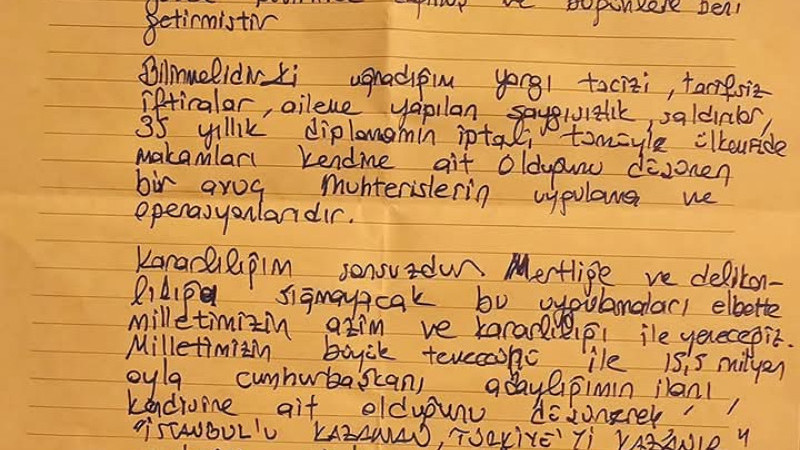 ve bugünlere beni
getirmiştir
Bilinmelidir ki uğradığım yargı tacizi, tarifsiz
iftiralar, aileme yapılan saygısızlık, saldırılar,
35 yıllık diplomamın iptali tamamıyla ülkemizde
makamları kendine ait olduğunu düşünen
bir avuç muhterislerin uygulama ve
operasyonlarıdır.
Kararlılığım sonsuzdur. Mertliğe ve delikan-
lılığa sığmayacak bu uygulamaları elbette
milletimizin azim ve kararlılığı ile yeneceğiz.
Milletimizin büyük teveccühü ile 15,5 milyon
oyla cumhurbaşkanı adaylığımın ilanı,
kendisine ait olduğunu düşünerek
"İSTANBUL'U KAZANAN, TÜRKİYE'Yİ KAZANIR"